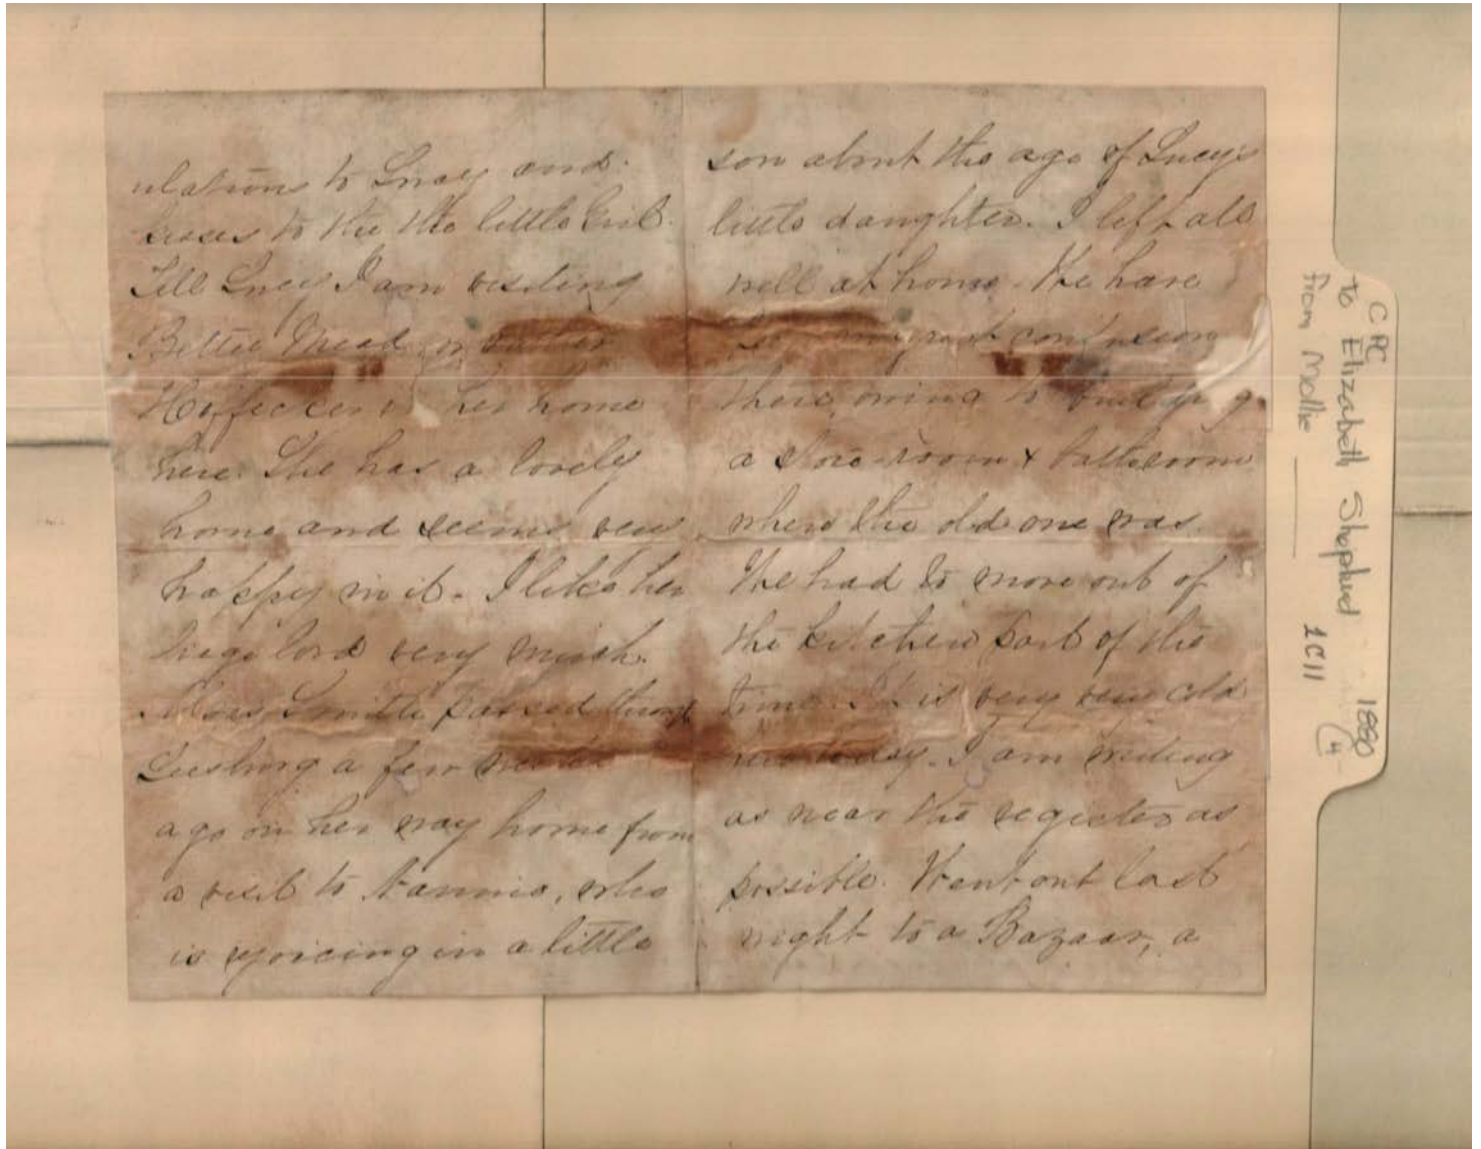 ulations to Lucy and
kisses to the the little Girl.
Tell Lucy I am visiting
Bettie Mead or rather
Hoffecker in her home
here. She has a lovely
home and seems very
happy in it. I like her
liege lord very much.
Miss Smith passed through
Leesburg a few weeks
ago on her way home from
a visit to Nannie, who
is rejoicing in a little
son about the age of Lucy's
little daughter. I left all
well at home. We have
been in great confusion
there owing to building
a store-room & bathroom
where the old one was.
We had to move out of
the kitchen part of the
time. It is very very cold
here today. I am writing
as near the register as
possible. Went out last
night to a Bazaar, a
CPC
to Elizabeth Shepherd 1880
from Mollie
1C11
(4